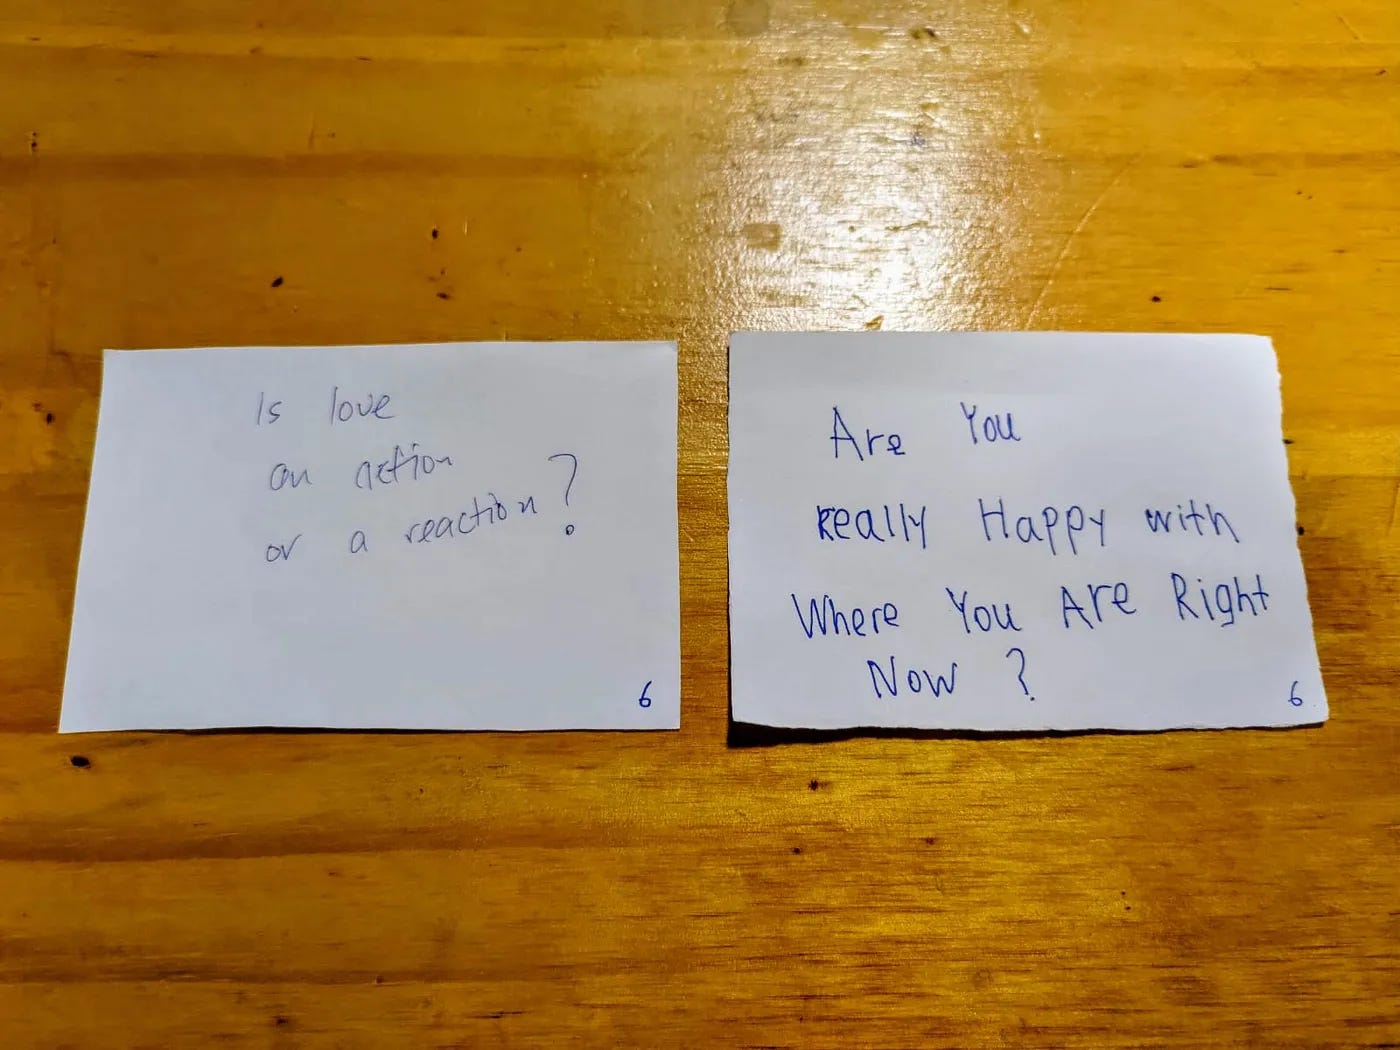 Is love
an action
or a reaction?
6
Are You
Really Happy with
Where You Are Right
Now ?
6